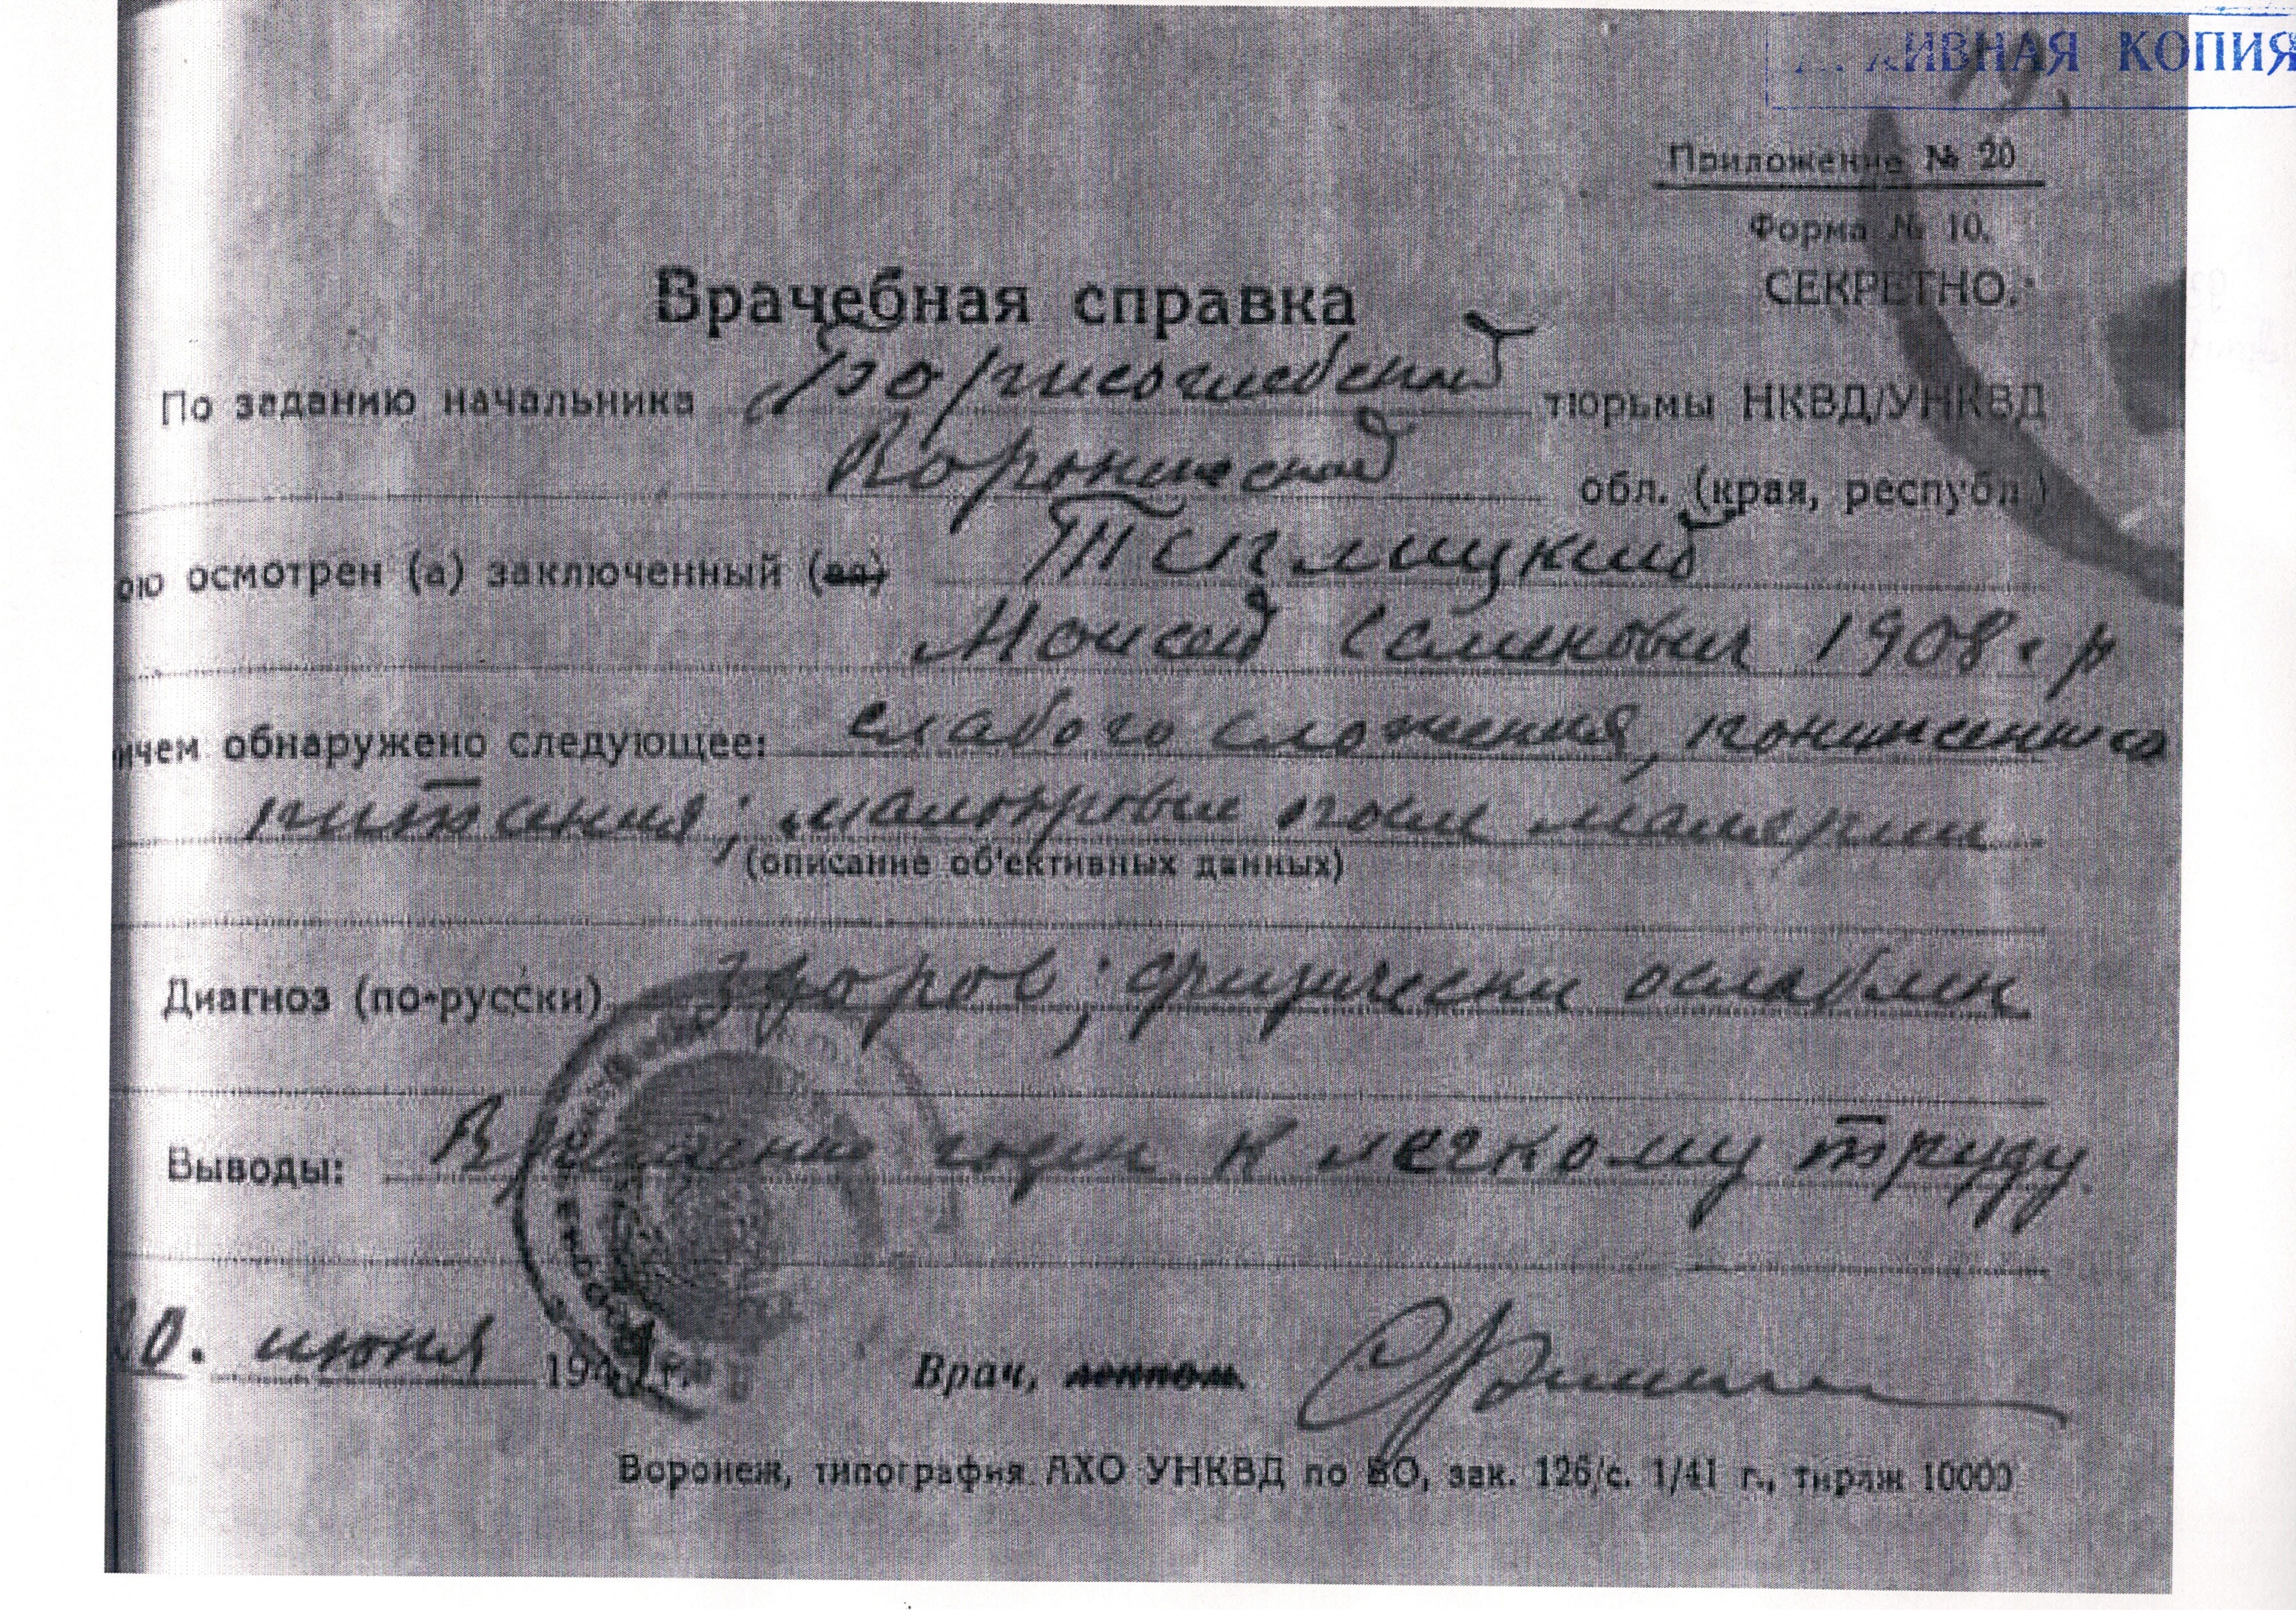 АРХИВНАЯ КОПИЯ
Приложение № 20
Форма № 10.
СЕКРЕТНО.
Врачебная справка
По заданию начальника Борисоглебской тюрьмы НКВД/УНКВД
Воронежской обл. (края, республ.)
ою осмотрен (а) заключенный (ая)
Моисей Семенович 1908 г р
ичем обнаружено следующее: слабого сложения, пониженного
питания; малокровие после малярии
(описание об'ективных данных)
Диагноз (по-русски) здоров; физически ослаблен
Выводы: Временно годен к легкому труду.
20. июня 194 г.
Врач, лекпом.
Воронеж, типография АХО УНКВД по ВО, зак. 126/с. 1/41 г., тираж 10000